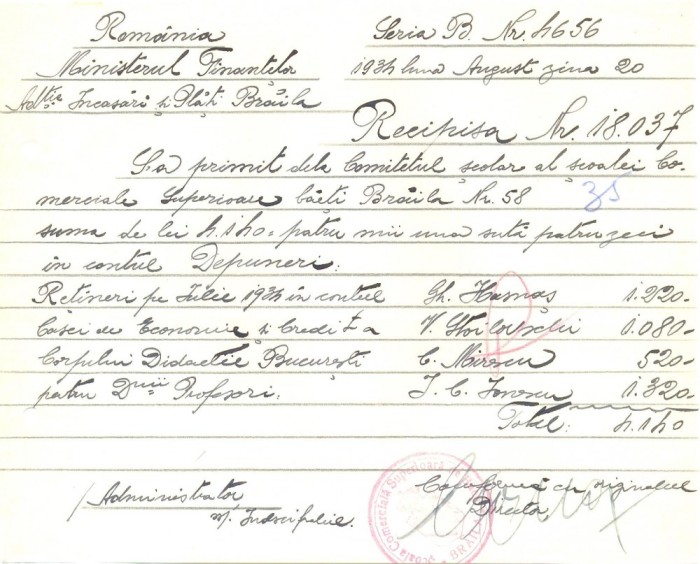 România
Ministerul Finanțelor
Adția Încasări și Plăți Brăila
Seria B. Nr. 4656
1934 luna August ziua 20
Recipisa Nr. 18.037
S'a primit dela Comitetul școlar al școalei Co-
merciale Superioare băeti Brăila Nr. 58
35
suma de lei 4.140 = patru mii una sută patruzeci
în contul Depuneri:
Rețineri pe Iulie 1934 în contul Gh. Hamaș 1.220-
Casei de Economie și Credit a V. 1.080-
Corpului Didactic București C. Mirescu 520-
patru Dnii Profesori: I. C. Ionescu 1.320-
Total: 4.140
Administrator
ss/ Indescifrabil
Conformă cu originalul
Director
Școala Comercială Superioară de